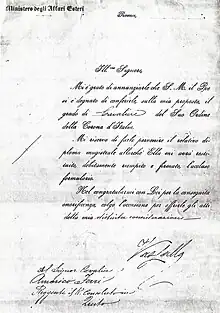 Ministero degli Affari Esteri
Roma,
Ill.mo Signore,
Mi è grato di annunziarle che S. M. il Re
si è degnato di conferirle, sulla mia proposta, il
grado di Cavaliere del Suo Ordine
della Corona d'Italia.
Mi riservo di farle pervenire il relativo di-
ploma magistrale allorchè Ella mi avrà resti-
tuito, debitamente riempito e firmato, l'accluso
formulario.
Nel congratularmi con Lei per la conseguita
onorificenza, colgo l'occasione per offrirle gli atti
della mia distinta considerazione.
Al Signor
Americo
Reggente il R. Consolato in
Quito